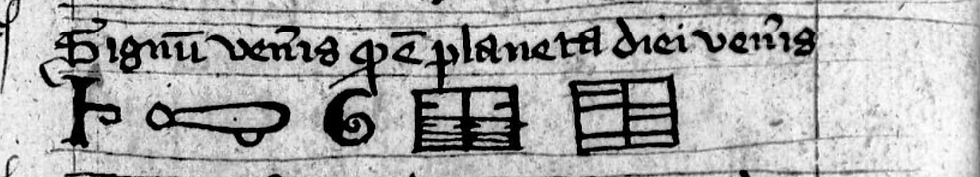 Signū ven̄is q̄ ē planeta diei ven̄is